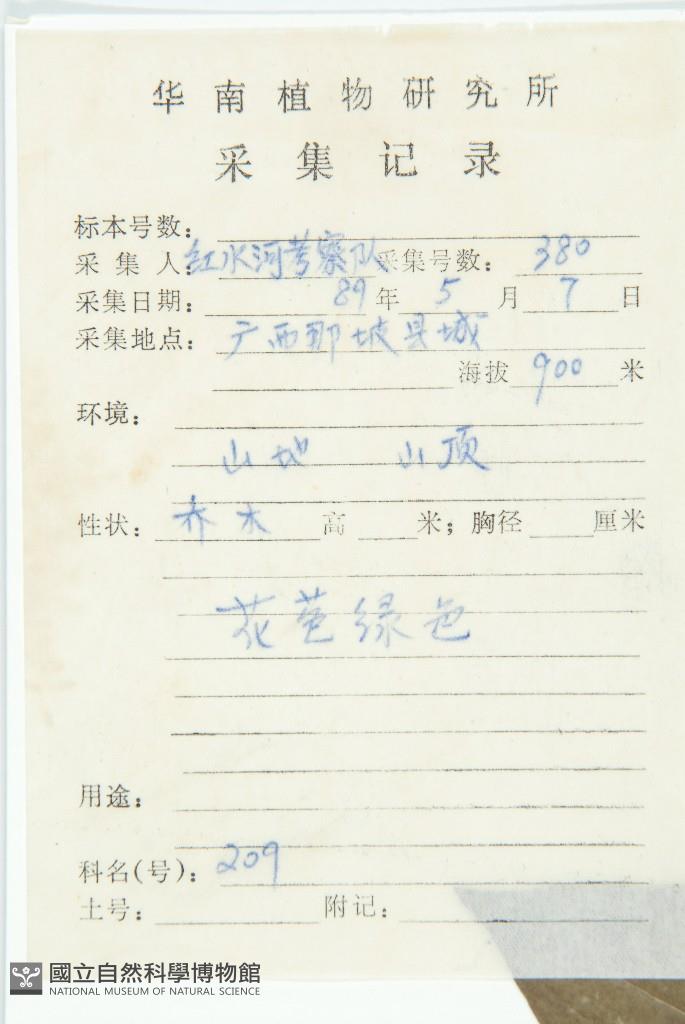 华南植物研究所
采集记录
标本号数：
采集人：红水河考察队 采集号数：380
采集日期：89年5月7日
采集地点：广西那坡县城
海拔 900 米
环境：
山地 山顶
性状：乔木 高 米；胸径 厘米
花苞绿色
用途：
科名(号)：209
土号： 附记：
國立自然科學博物館
NATIONAL MUSEUM OF NATURAL SCIENCE